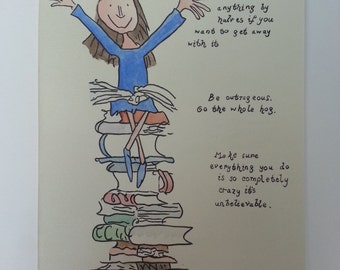 anything by
halves if you
want to get away
with it
Be outrageous.
Go the whole hog.
Make sure
everything you do
is so completely
crazy it's
unbelievable.